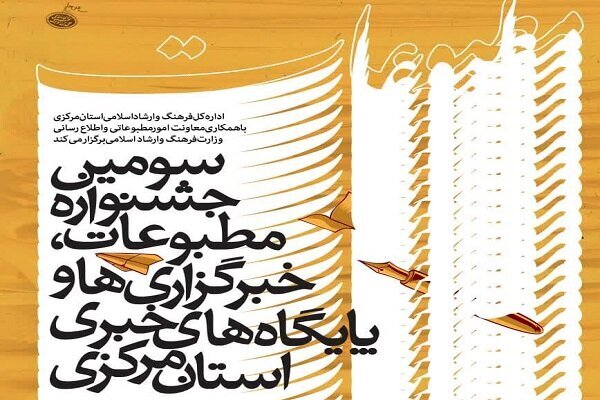 مطبوعات
اداره کل فرهنگ و ارشاد اسلامی استان مرکزی
با همکاری معاونت امور مطبوعاتی و اطلاع رسانی
وزارت فرهنگ و ارشاد اسلامی برگزار می کند
سومین
جشنواره
مطبوعات،
خبرگزاری ها و
پایگاه های خبری
استان مرکزی